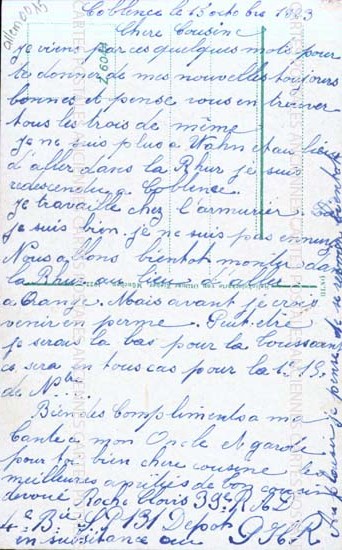 Coblence le 15 octobre 1923
Chere Cousine
je viens par ces quelques mots pour
te donner de mes nouvelles toujours
bonnes et pense vous en trouver
tous les trois de même
Je ne suis plus a Wahn et au lieu
d'aller dans la Rhur je suis
redescendu a Coblence.
je travaille chez l'armurier.
je suis bien. je ne suis pas ennuyé
Nous allons bientot monter dans
la Rhur au lieu d'aller
a Orange. Mais avant je crois
venir en perme. Peut etre
je serais la bas pour la Toussaint
ca sera en tous cas pour la
de N
Bien des compliments a ma
tante a mon Oncle et garde
pour toi bien chere cousine les
meilleures amitiés de ton cousin
devoué Roche Clovis 39e R A D
4e Bie S P 131 Depot
en subsistance au P H R
plaisir je pense de se revoir bientot
allem0015